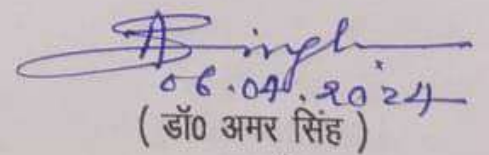 A Singh
06.04.2024
( डॉ0 अमर सिंह )